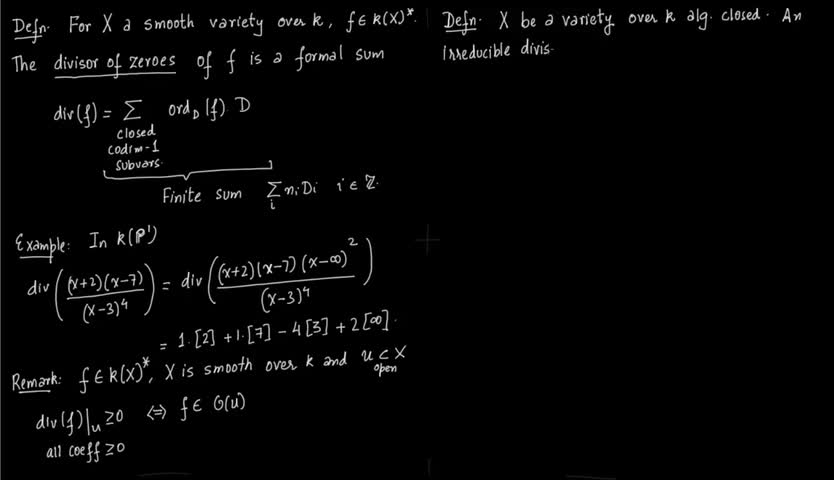 Defn. For X a smooth variety over k, f ∈ k(X)*.
The divisor of zeroes of f is a formal sum
div(f) = ∑ ord_D(f) D
closed
codim-1
subvars.
Finite sum ∑_i n_i D_i i ∈ ℤ.
Example: In k(ℙ¹)
div((x+2)(x-7)/(x-3)^4) = div((x+2)(x-7)(x-∞)^2/(x-3)^4)
= 1·[2] + 1·[7] - 4[3] + 2[∞].
Remark: f ∈ k(X)*, X is smooth over k and U ⊂ X
open
div(f)|_U ≥ 0 ⇔ f ∈ O(U)
all coeff ≥ 0
Defn. X be a variety over k alg. closed. An
irreducible divis